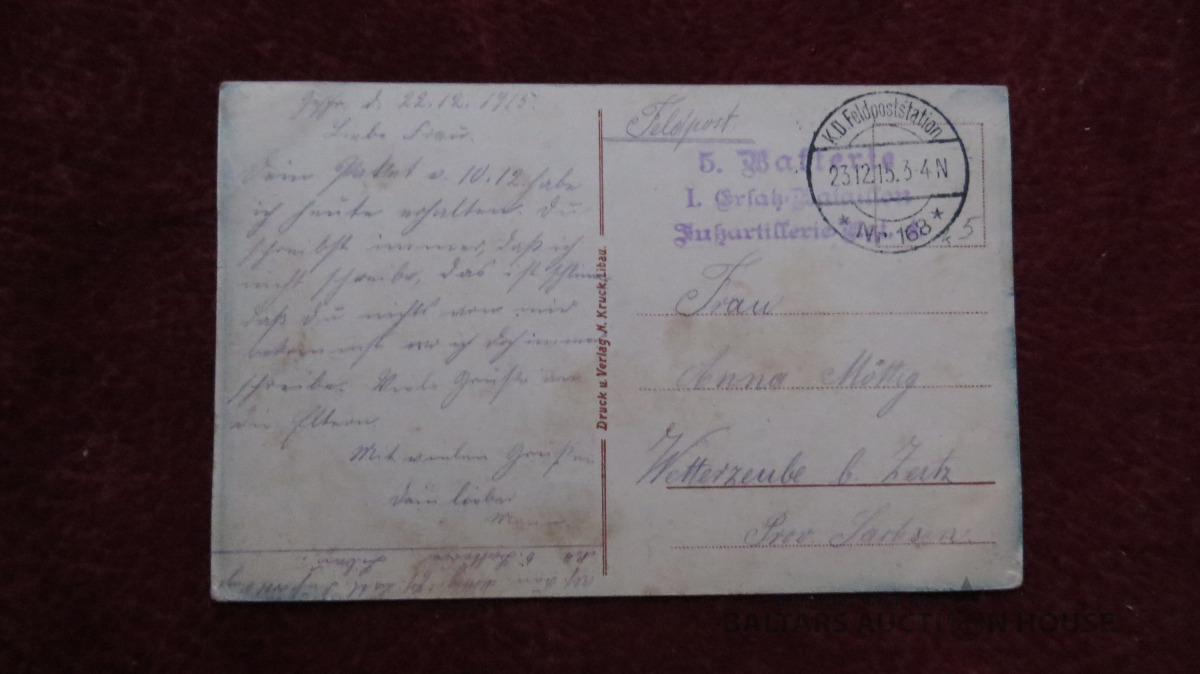 d. 22.12.1915.
Liebe Frau.
Dein Paket v. 10.12. habe
ich heute erhalten. Du
schreibst immer, daß ich
nicht schreibe, das ist schlimm
daß Du nichts von mir
bekommst wo ich doch immer
schreibe. Viele Grüße an
die Eltern.
Mit vielen Grüßen
Dein lieber
Mann
Druck u Verlag. N. Kruck, Libau.
Feldpost.
5. Batterie
I. Ersatz-Bataillon
Fußartillerie
K.D. Feldpoststation
23.12.15. 3-4 N
* Nr 168 *
5
Frau
Anna Möttig
Wetterzeube b. Zeitz
Prov. Sachsen.
BALTARS AUCTION HOUSE